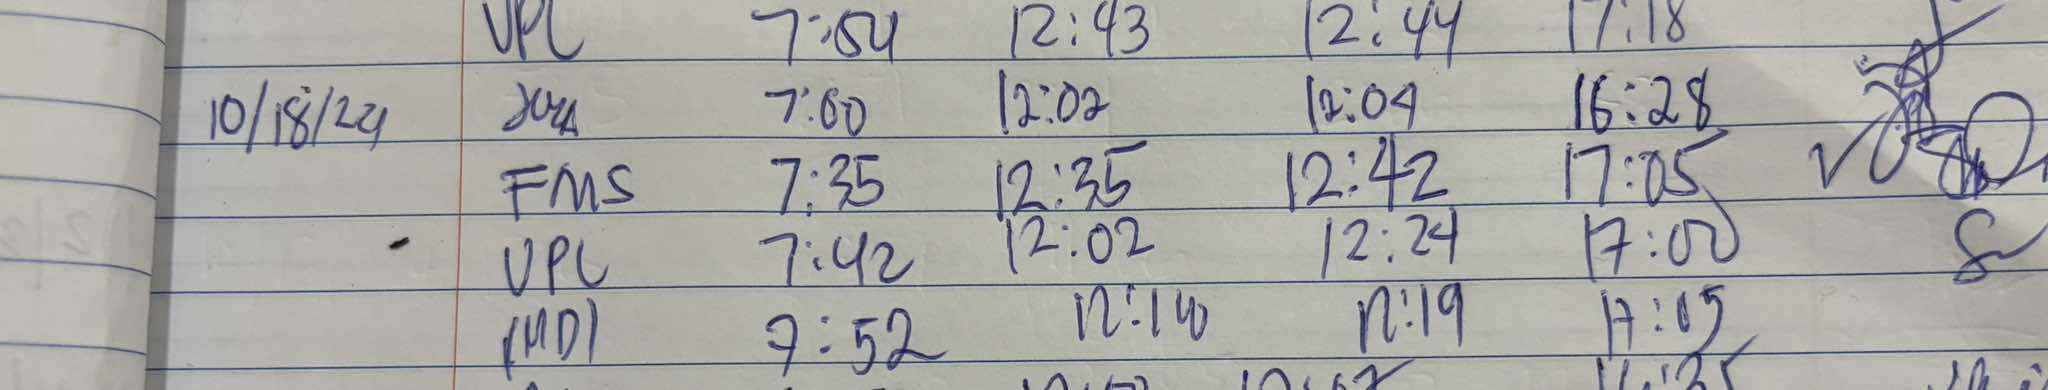 VPL 7:54 12:43 12:44 17:18
10/18/24 7:00 12:02 12:04 16:28
FMS 7:35 12:35 12:42 17:05
VPL 7:42 12:02 12:24 17:00
7:52 12:10 12:19 17:05